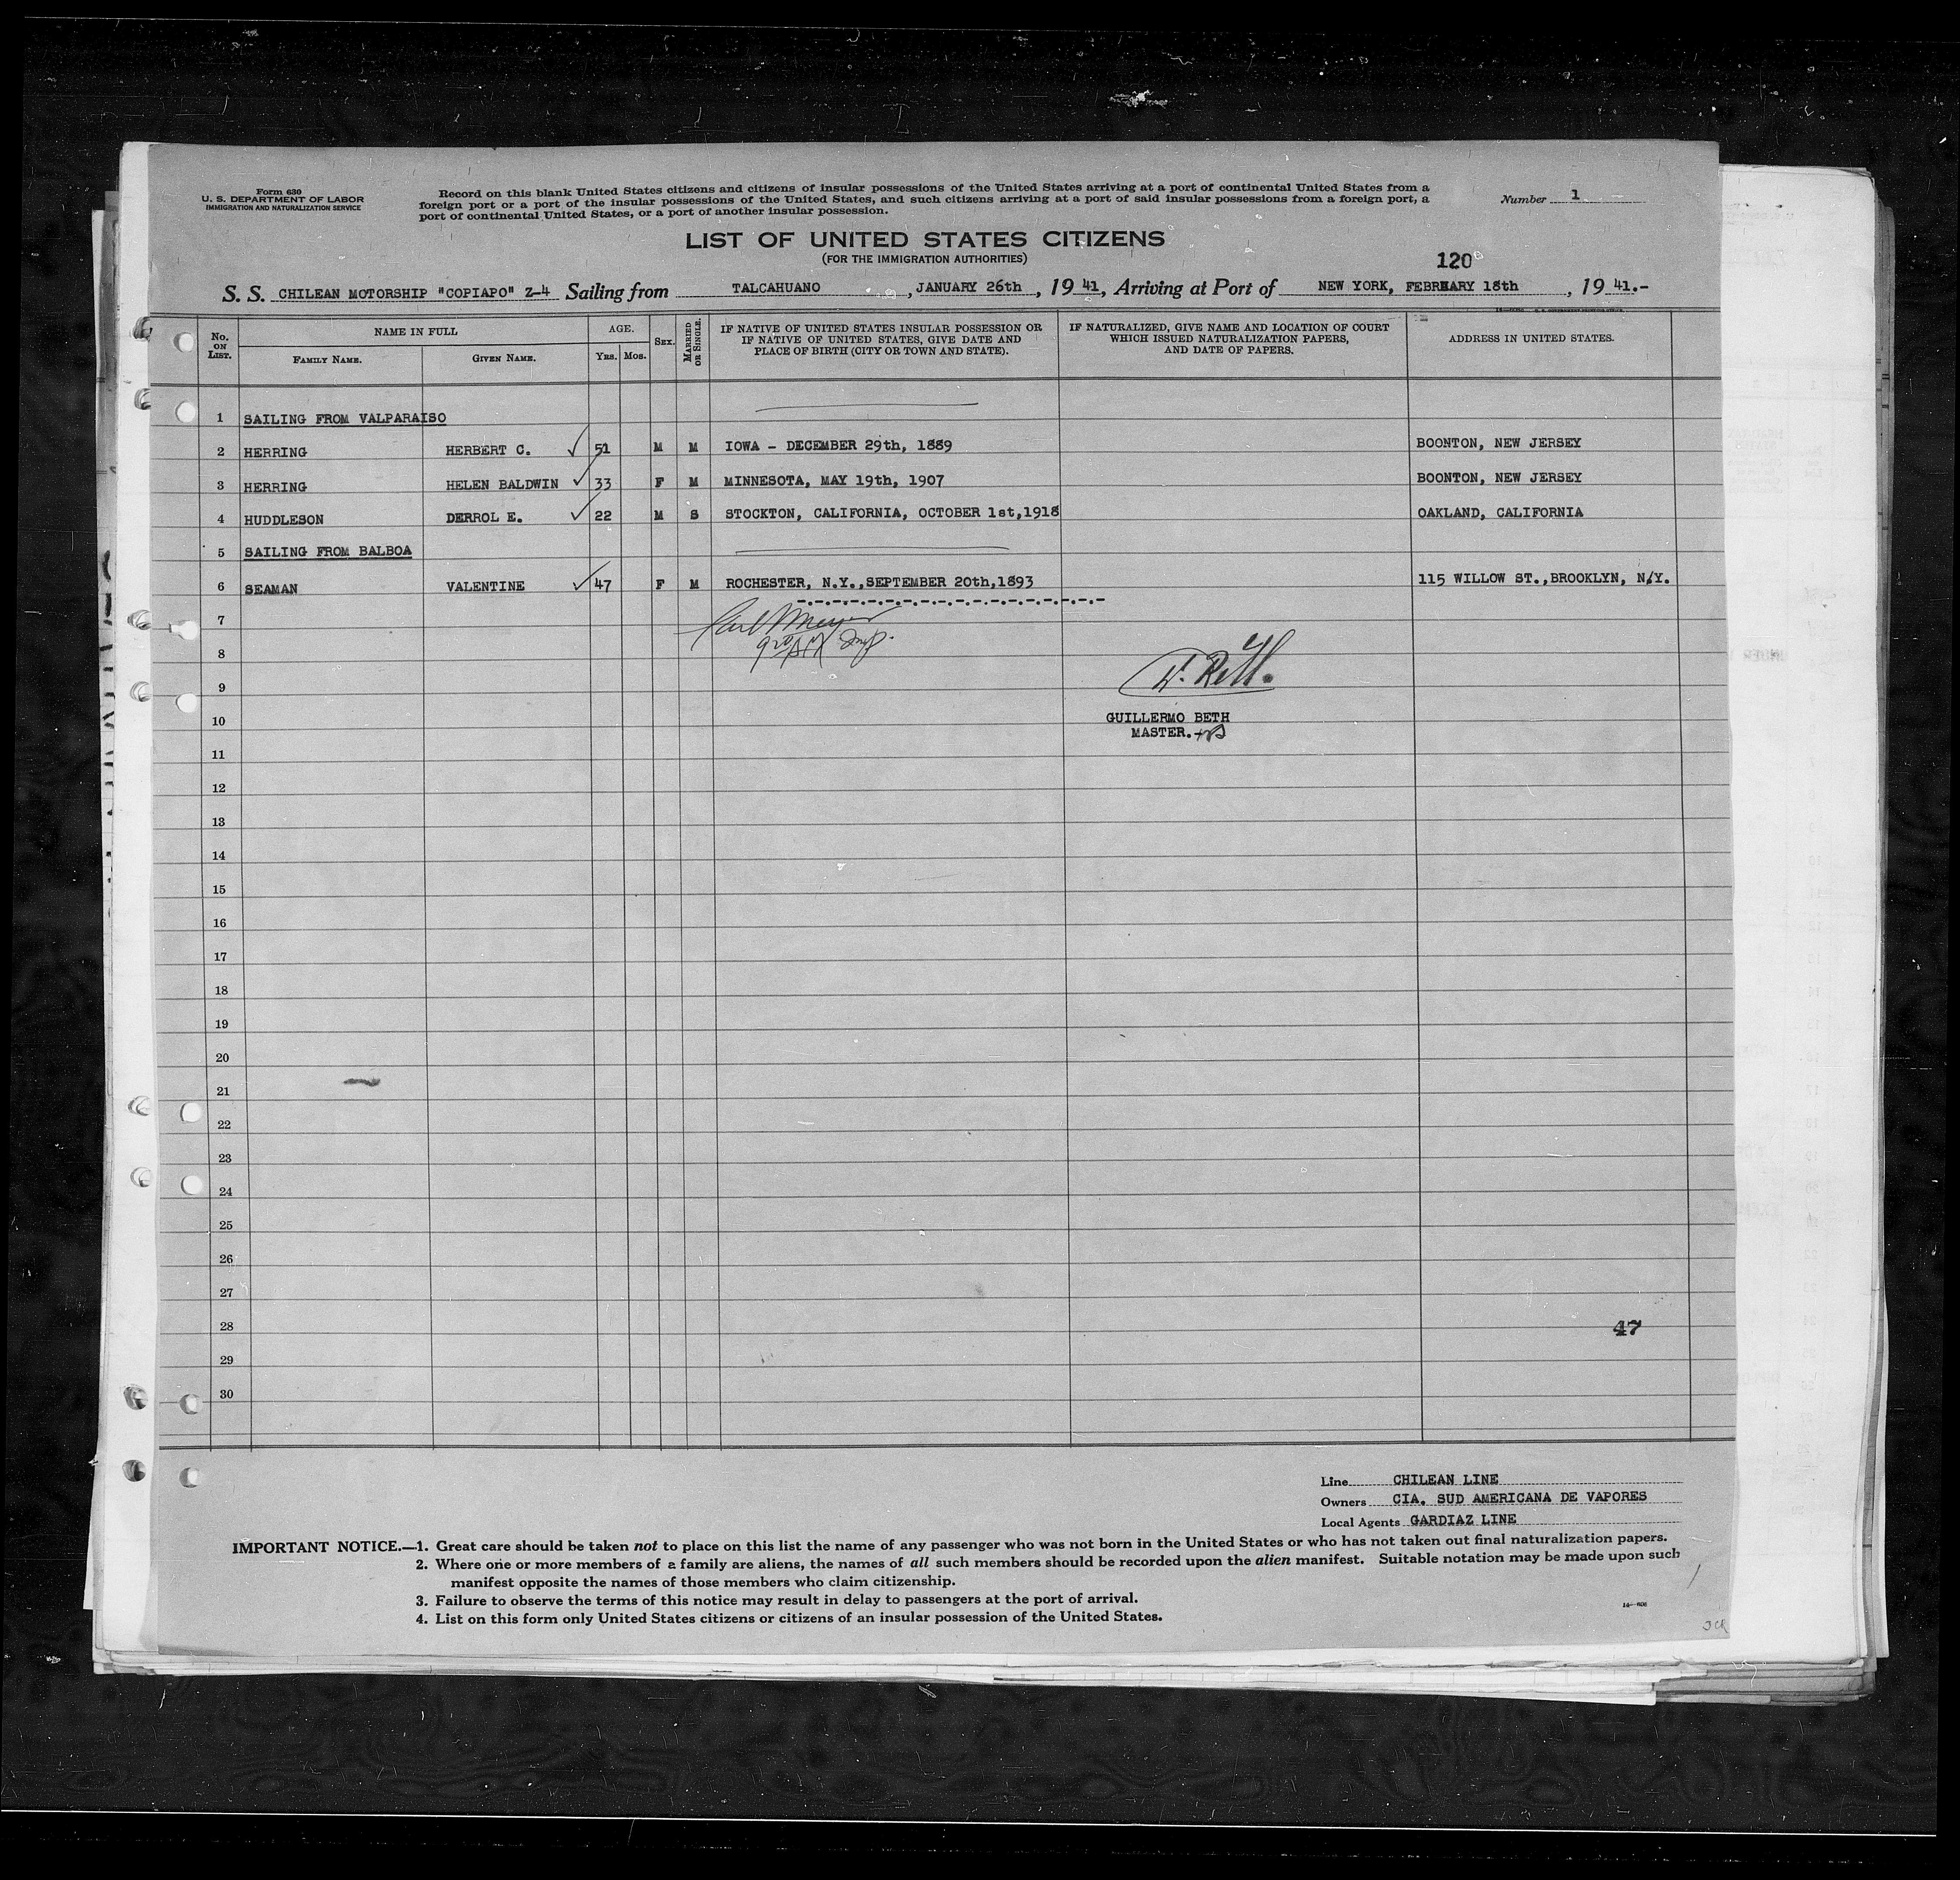 Form 630
U. S. DEPARTMENT OF LABOR
IMMIGRATION AND NATURALIZATION SERVICE
Record on this blank United States citizens and citizens of insular possessions of the United States arriving at a port of continental United States from a
foreign port or a port of the insular possessions of the United States, and such citizens arriving at a port of said insular possessions from a foreign port, a
port of continental United States, or a port of another insular possession.
Number 1
LIST OF UNITED STATES CITIZENS
(FOR THE IMMIGRATION AUTHORITIES)
120
S. S. CHILEAN MOTORSHIP "COPIAPO" Z-4 Sailing from TALCAHUANO, JANUARY 26th, 19 41, Arriving at Port of NEW YORK, FEBRUARY 18th, 19 41.-
No. ON LIST.
NAME IN FULL
FAMILY NAME.
GIVEN NAME.
AGE.
YRS. MOS.
SEX.
MARRIED OR SINGLE.
IF NATIVE OF UNITED STATES INSULAR POSSESSION OR
IF NATIVE OF UNITED STATES, GIVE DATE AND
PLACE OF BIRTH (CITY OR TOWN AND STATE).
IF NATURALIZED, GIVE NAME AND LOCATION OF COURT
WHICH ISSUED NATURALIZATION PAPERS,
AND DATE OF PAPERS.
ADDRESS IN UNITED STATES.
1 SAILING FROM VALPARAISO
2 HERRING HERBERT C. 51 M M IOWA - DECEMBER 29th, 1889 BOONTON, NEW JERSEY
3 HERRING HELEN BALDWIN 33 F M MINNESOTA, MAY 19th, 1907 BOONTON, NEW JERSEY
4 HUDDLESON DERROL E. 22 M S STOCKTON, CALIFORNIA, OCTOBER 1st,1918 OAKLAND, CALIFORNIA
5 SAILING FROM BALBOA
6 SEAMAN VALENTINE 47 F M ROCHESTER, N.Y.,SEPTEMBER 20th,1893 115 WILLOW ST.,BROOKLYN, N.Y.
7
8
9
10 GUILLERMO BETH
MASTER.
11
12
13
14
15
16
17
18
19
20
21
22
23
24
25
26
27
28 47
29
30
Line CHILEAN LINE
Owners CIA. SUD AMERICANA DE VAPORES
Local Agents GARDIAZ LINE
IMPORTANT NOTICE.—1. Great care should be taken not to place on this list the name of any passenger who was not born in the United States or who has not taken out final naturalization papers.
2. Where one or more members of a family are aliens, the names of all such members should be recorded upon the alien manifest. Suitable notation may be made upon such
manifest opposite the names of those members who claim citizenship.
3. Failure to observe the terms of this notice may result in delay to passengers at the port of arrival.
4. List on this form only United States citizens or citizens of an insular possession of the United States.